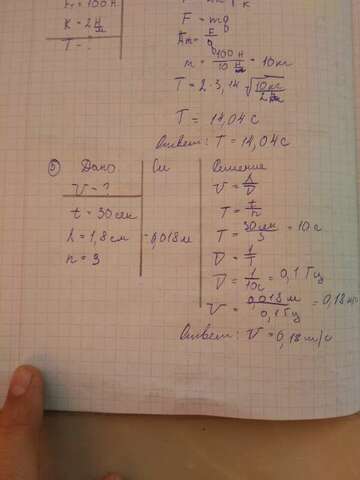 = 100 Н
К = 2 Н/м
T - ?
F = mg
m = F/g
m = 100 Н / 10 Н/кг = 10 кг
T = 2·3,14 √(10 кг / 2 Н/м)
T = 14,04 с
Ответ: T = 14,04 с
5) Дано
V - ?
t = 30 сек
λ = 1,8 см
n = 3
Си
0,018 м
Решение
V = λ/ν
T = t/n
T = 30 сек / 3 = 10 с
ν = 1/T
ν = 1/10с = 0,1 Гц
V = 0,018 м / 0,1 Гц = 0,18 м/с
Ответ: V = 0,18 м/с